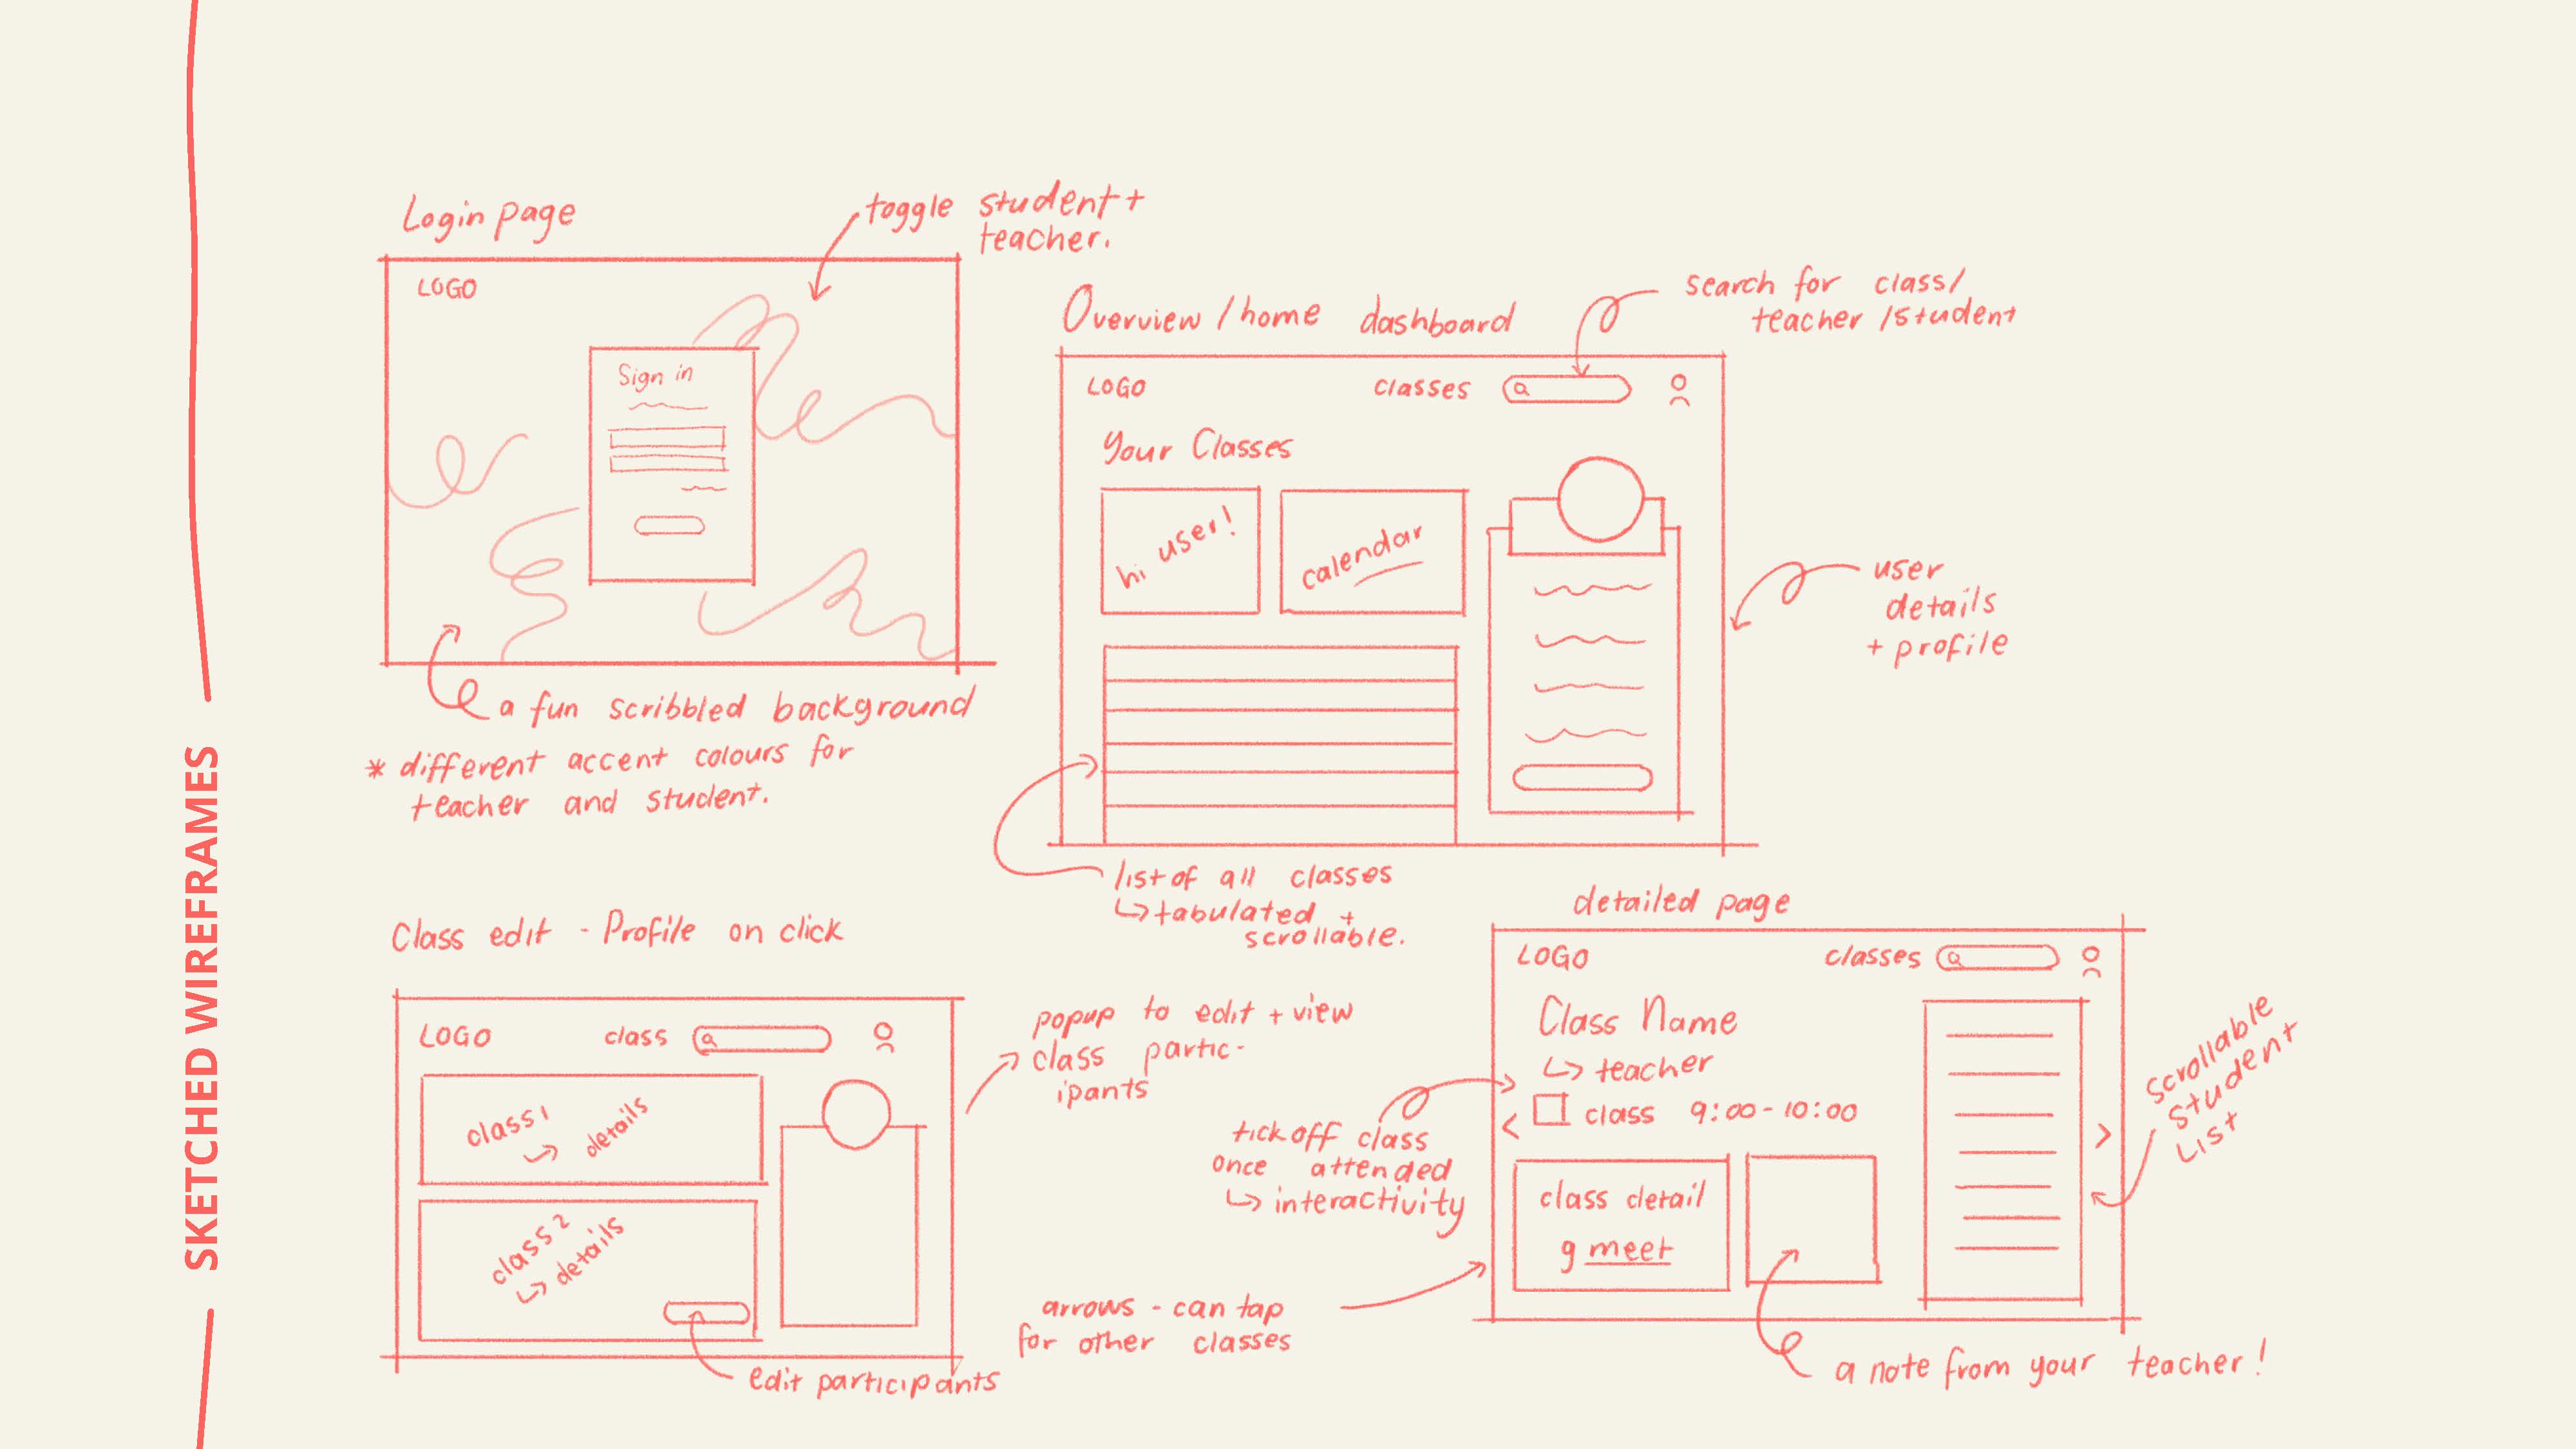 SKETCHED WIREFRAMES
Login page
toggle student +
teacher.
LOGO
Sign in
a fun scribbled background
* different accent colours for
teacher and student.
Overview / home dashboard
search for class/
teacher /student
LOGO classes
Your Classes
hi user!
calendar
user
details
+ profile
list of all classes
↳ tabulated +
scrollable.
Class edit - Profile on click
LOGO class
class 1
↳ details
class 2
↳ details
edit participants
popup to edit + view
class partic-
ipants
detailed page
LOGO classes
Class Name
↳ teacher
< class 9:00-10:00
>
class detail
g meet
scrollable
student
list
tick off class
once attended
↳ interactivity
arrows - can tap
for other classes
a note from your teacher!